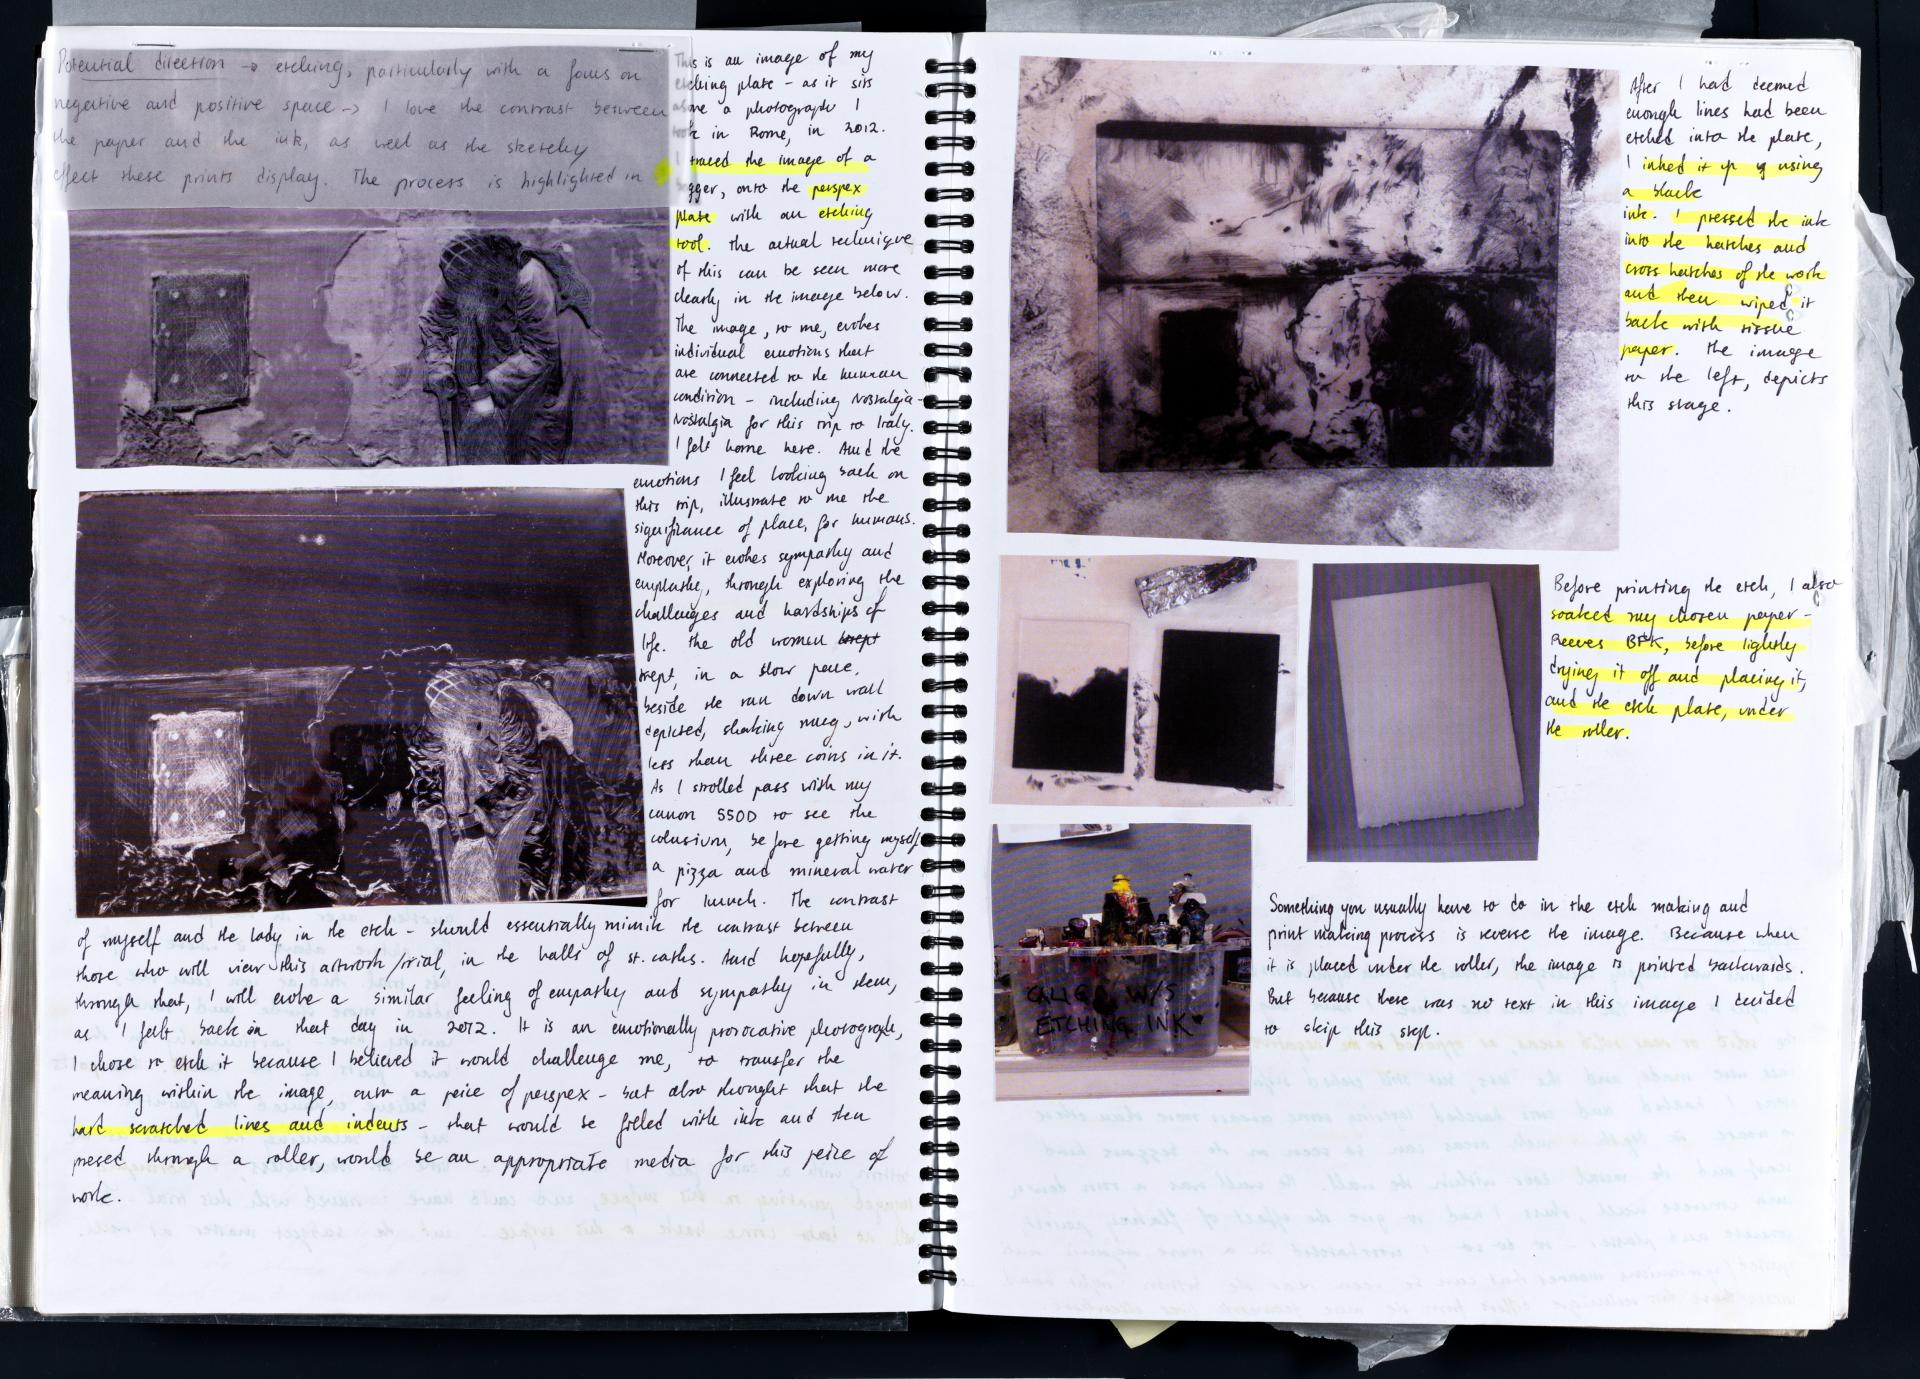 Potential direction → etching, particularly with a focus on
negative and positive space → I love the contrast between
the paper and the ink, as well as the sketchy
effect these prints display. The process is highlighted in
This is an image of my
etching plate - as it sits
above a photograph I
took in Rome, in 2012.
I traced the image of a
beggar, onto the perspex
plate with an etching
tool. The actual technique
of this can be seen more
clearly in the image below.
The image, to me, evokes
individual emotions that
are connected to the human
condition - including Nostalgia -
Nostalgia for this trip to Italy.
I felt home here. And the
emotions I feel looking back on
this trip, illustrate to me the
significance of place, for humans.
Moreover, it evokes sympathy and
empathy, through exploring the
challenges and hardships of
life. The old women
wept, in a slow pace,
beside the run down wall
depicted, shaking mug, with
less than three coins in it.
As I strolled pass with my
canon 550D to see the
colusium, before getting myself
a pizza and mineral water
for lunch. The contrast
of myself and the lady in the etch - should essentially mimik the contrast between
those who will view this artwork/trial, in the halls of st. caths. And hopefully,
through that, I will evoke a similar feeling of empathy and sympathy in them,
as I felt back on that day in 2012. It is an emotionally provocative photograph,
I chose to etch it because I believed it would challenge me, to transfer the
meaning within the image, onto a peice of perspex - but also thought that the
hard scratched lines and indents - that would be filled with ink and then
presed through a roller, would be an appropriate media for this peice of
work.
After I had deemed
enough lines had been
etched into the plate,
I inked it up using
a black
ink. I pressed the ink
into the hatches and
cross hatches of the work
and then wiped it
back with tissue
paper. The image
to the left, depicts
this stage.
Before printing the etch, I also
soaked my chosen paper -
Reeves BFK, before lightly
drying it off and placing it,
and the etch plate, under
the roller.
CALIGO W/S
ETCHING INK
Something you usually have to do in the etch making and
print making process is reverse the image. Because when
it is placed under the roller, the image is printed backwards.
But because there was no text in this image I decided
to skip this step.